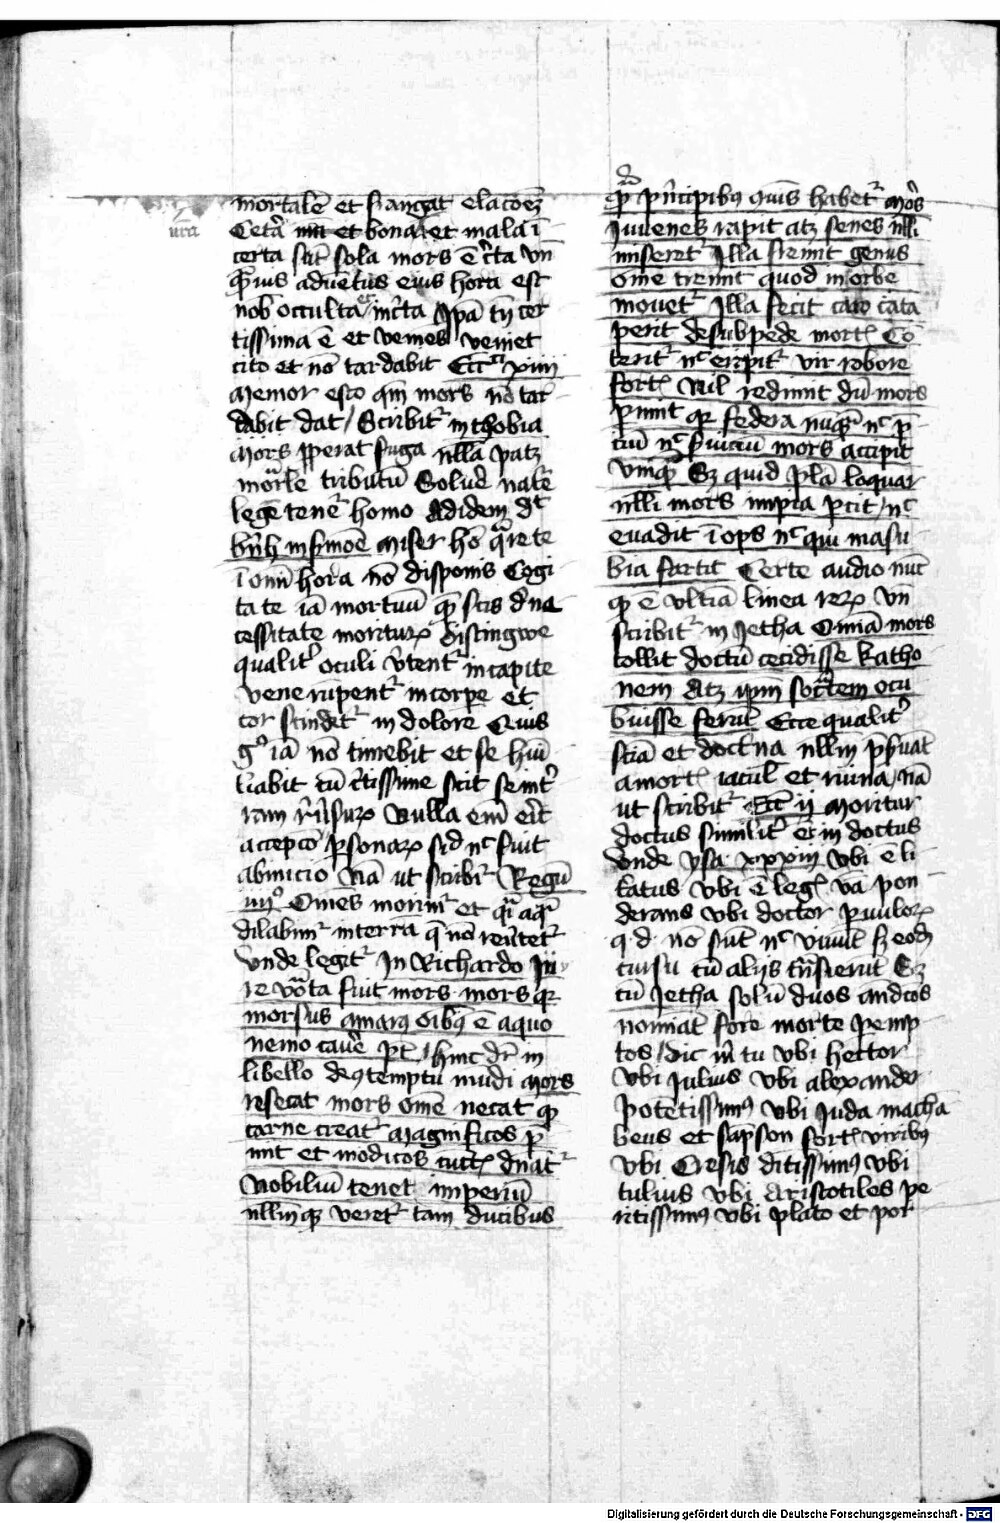 mortalē et frangat elacōeʒ
Cetā nr̄a et bona et mala ī
vr̄a
certa sūt sola mors ē c̄ta Vn̄
p̄uius aduētus eius hora est
nob̄ occulta et incͥta Ip̄a tn̄ cer
tissima ē et veniēs veniet
cito et nō tardabit Ecc̄ᶜⁱ xiiii
Memor esto qm̄ mors nō tar
dabit dat / Scribitᷣ in thobia
Mors ꝓperat fuga nulla patʒ
mortͣle tributū Soluē natͤ
legē tenēᷣ homo Ad idem dͭ
bn̄h in ẜmōe Miser hō qͣre te
ī om̄i hora nō disponis Cogi
ta te iā mortuū qͣ scis de ne
cessitate moriturꝝ Distingwe
qualitͬ oculi v̄tentᷣ in capite
vene rūpentᷣ in corꝑe et
cor scindetᷣ in dolore Quis
gͦ iā nō timebit et se hūi
liabit cū c̄tissime scit se in tͬ
ram reūsurꝝ Nulla em̄ erit
accepcō ꝑsonaꝝ sic nᶜ fuit
ab inicio Nā ut scͥbitᷣ Regū
iiijͦ Om̄es morimᷣ et qͣi aqͣ
dilabimᷣ in terrā q̄ nō reūtetᷣ
Vnde legitᷣ In Richardo Iu
re vocata fuit mors mors qꝛ
morsus amarꝯ oībꝫ ē a quo
nemo cauē pt̄ / hinc dr̄ in
libello de ꝯtemptu mūdi Mors
resecat mors om̄e necat qͩ
carne creatᷣ Magnificos p̄
mit et modicos cūctꝭ dn̄atᷣ
Nobiliū tenet imperiū
nullūqꝫ veretᷣ tam ducibus
qͣ pͥncipibꝫ quis habetᷣ Mors
Iuuenes rapit atqꝫ senes nulli
miseretᷣ Illa fremit genus
om̄e tremit quod in orbe
mouetᷣ Illa fecit caro cāta
perit de sub pede mortꝭ Cō
teritᷣ nᶜ eripitᷣ vir robore
fortꝭ Nil redimit dū mors
ꝑimit qꝛ federa nūqͣ nᶜ p̄
ciū nᶜ ẜuiciū mors accipit
vmqͣ Sʒ quid plͣa loquar
nulli mors impia ꝑcit / nᶜ
euadit īops nᶜ qui
Certe audio nūc
qͩ ē vltīa linea rerꝝ Vn̄
scribitᷣ in Ietha Omīa mors
tollit doctū cecidisse katho
nem Atqꝫ ip̄m socͣtem ocu
buisse ferūt Ecce qualitͬ
scīa et doctͥna nullū p̄ẜuat
a mortꝭ iaculꝭ et ruina / nā
ut scribitᷣ Ecc̄ ij Moritur
doctus similitͬ et in doctus
Vnde ysa xxxiij Vbi ē li
tatus vbi ē legꝭ v̄a pon
derans vbi doctor ꝑuulorꝝ
q d nō sūt nᶜ viuūt sʒ eodʒ
cursu cū aliis tͣnsierūt Sʒ
cū Ietha solū duos
nomiāt fore morte pemp
tos / dic m̄ tu vbi hector
vbi Iulius vbi alexander
potētissimꝯ vbi Iuda macha
beus et sāpson fortꝭ viribꝫ
vbi Cresis ditissimꝯ vbi
tulius vbi Aristotiles pe
ritissimꝯ vbi plato et por
Digitalisierung gefördert durch die Deutsche Forschungsgemeinschaft - DFG